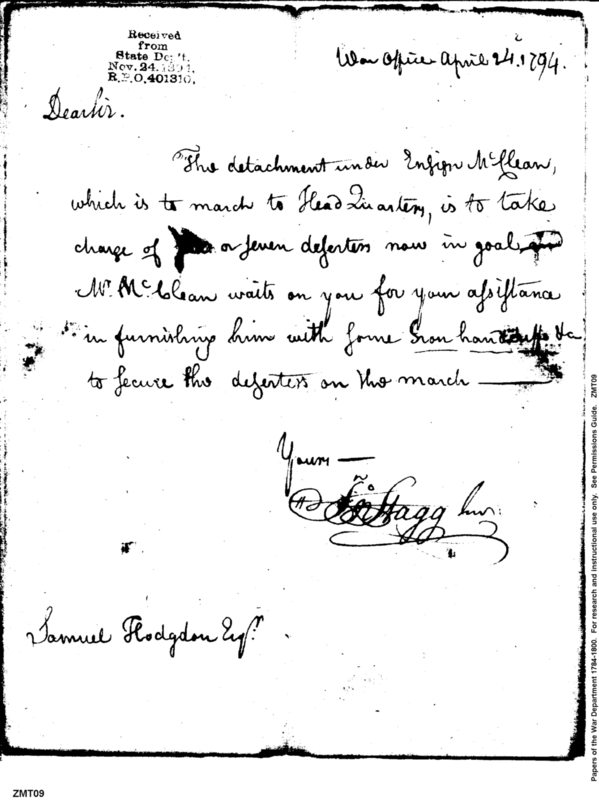 Received
from
State Dep't.
Nov. 24. 1894.
R.P.O. 401310.
War Office April 24. 1794.
Dear Sir.
The detachment under Ensign McClean,
which is to march to Head Quarters, is to take
charge of or seven deserters now in goal,
Mr. McClean waits on you for your assistance
in furnishing him with some Iron handcuffs &c
to secure the deserters on the march
Yours —
Jno Stagg Junr.
Samuel Hodgdon Esqr.
Papers of the War Department 1784-1800. For research and instructional use only. See Permissions Guide. ZMT09
ZMT09